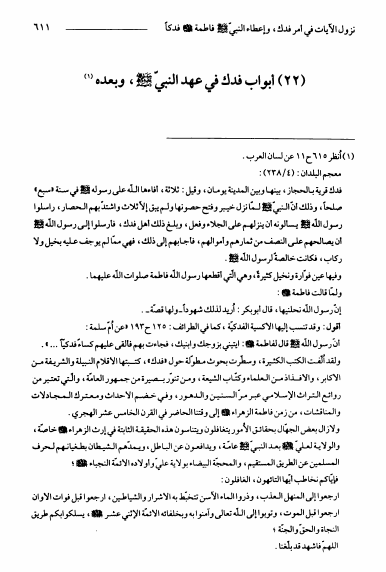 نزول الآيات في أمر فدك، وإعطاء النبيّ ﷺ فاطمة فدكاً ٦١١
(٢٢) أبواب فدك في عهد النبيّ ﷺ، وبعده (١)
(١) أنظر ٦١٥ ح ١١ عن لسان العرب.
معجم البلدان: (٢٣٨/٤):
فدك قرية بالحجاز، بينها وبين المدينة يومان، وقيل: ثلاثة، أفاءها الله على رسوله ﷺ في سنة «سبع»
صلحاً، وذلك أنّ النبيّ ﷺ لمّا نزل خيبر وفتح حصونها ولم يبق إلّا ثلاث واشتدّ بهم الحصار، راسلوا
رسول الله ﷺ يسألونه أن ينزلهم على الجلاء وفعل، وبلغ ذلك أهل فدك، فأرسلوا إلى رسول الله ﷺ
أن يصالحهم على النصف من ثمارهم وأموالهم، فأجابهم إلى ذلك، فهي ممّا لم يوجف عليه بخيل ولا
ركاب، فكانت خالصة لرسول الله ﷺ.
وفيها عين فوّارة ونخيل كثيرة، وهي التي أقطعها رسول الله فاطمة صلوات الله عليهما.
ولمّا قالت فاطمة:
إنّ رسول الله نحلنيها، قال أبوبكر: أريد لذلك شهوداً ـ ولها قصة ـ.
أقول: وقد تنسب إليها الاكسية الفدكيّة، كما في الطرائف: ١٢٥ ح ١٩٣ «عن أمّ سلمة:
انّ رسول الله ﷺ قال لفاطمة: ايتيني بزوجك وابنيك، فجاءت بهم فألقى عليهم كساءً فدكيّاً ...».
ولقد ألّفت الكتب الكثيرة، وسطّرت بحوث مطوّلة حول «فدك»، كتبتها الأقلام النبيلة والشريفة من
الأكابر، والأفذاذ من العلماء وكتّاب الشيعة، ومن تنوّر ببصيرة من جمهور العامّة، والّتي تعتبر من
روائع التراث الإسلامي عبر مرّ السنين والدهور، وفي خضم الأحداث ومعترك المجادلات
والمناقشات، من زمن فاطمة الزهراء إلى وقتنا الحاضر في القرن الخامس عشر الهجري.
ولا زال بعض الجهّال بحقائق الأمور يتغافلون ويتناسون هذه الحقيقة الثابتة في إرث الزهراء خاصّة،
والولاية لعليّ بعد النبيّ ﷺ عامّة، ويدافعون عن الباطل، ويمدّهم الشيطان بطغيانهم لحرف
المسلمين عن الطريق المستقيم، والمحجّة البيضاء بولاية عليّ وأولاده الأئمّة النجباء
فإيّاكم نخاطب أيّها التائهون، الغافلون:
ارجعوا إلى المنهل العذب، وذروا الماء الآسن تتخبّط به الأشرار والشياطين، ارجعوا قبل فوات الأوان
ارجعوا قبل الموت، وتوبوا إلى الله تعالى وآمنوا به وبخلفائه الأئمّة الإثني عشر، يسلكوا بكم طريق
النجاة والحقّ والجنّة؛
اللهمّ فاشهد قد بلّغنا.